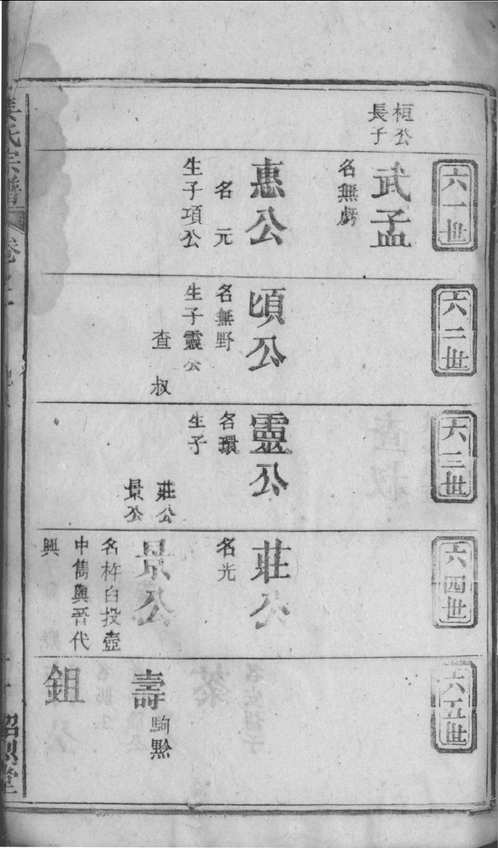 桓公
長子
六一世
武孟
名無虧
惠公
名元
生子項公
六二世
頃公
名無野
生子靈公
查叔
六三世
靈公
名環
生子
莊公
景公
六四世
莊公
名光
景公
名杵臼投壺
中雋與晉代
興
六五世
壽
駒黔
鉏
氏宗譜
卷
堂